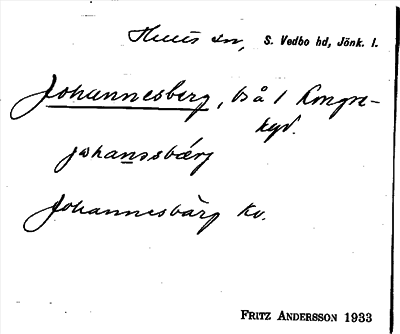 Hults sn, S. Vedbo hd, Jönk. l.
Johannesberg, bså 1 Kongse-
kyd.
johanssbärj
Johannesbärg kv.
FRITZ ANDERSSON 1933